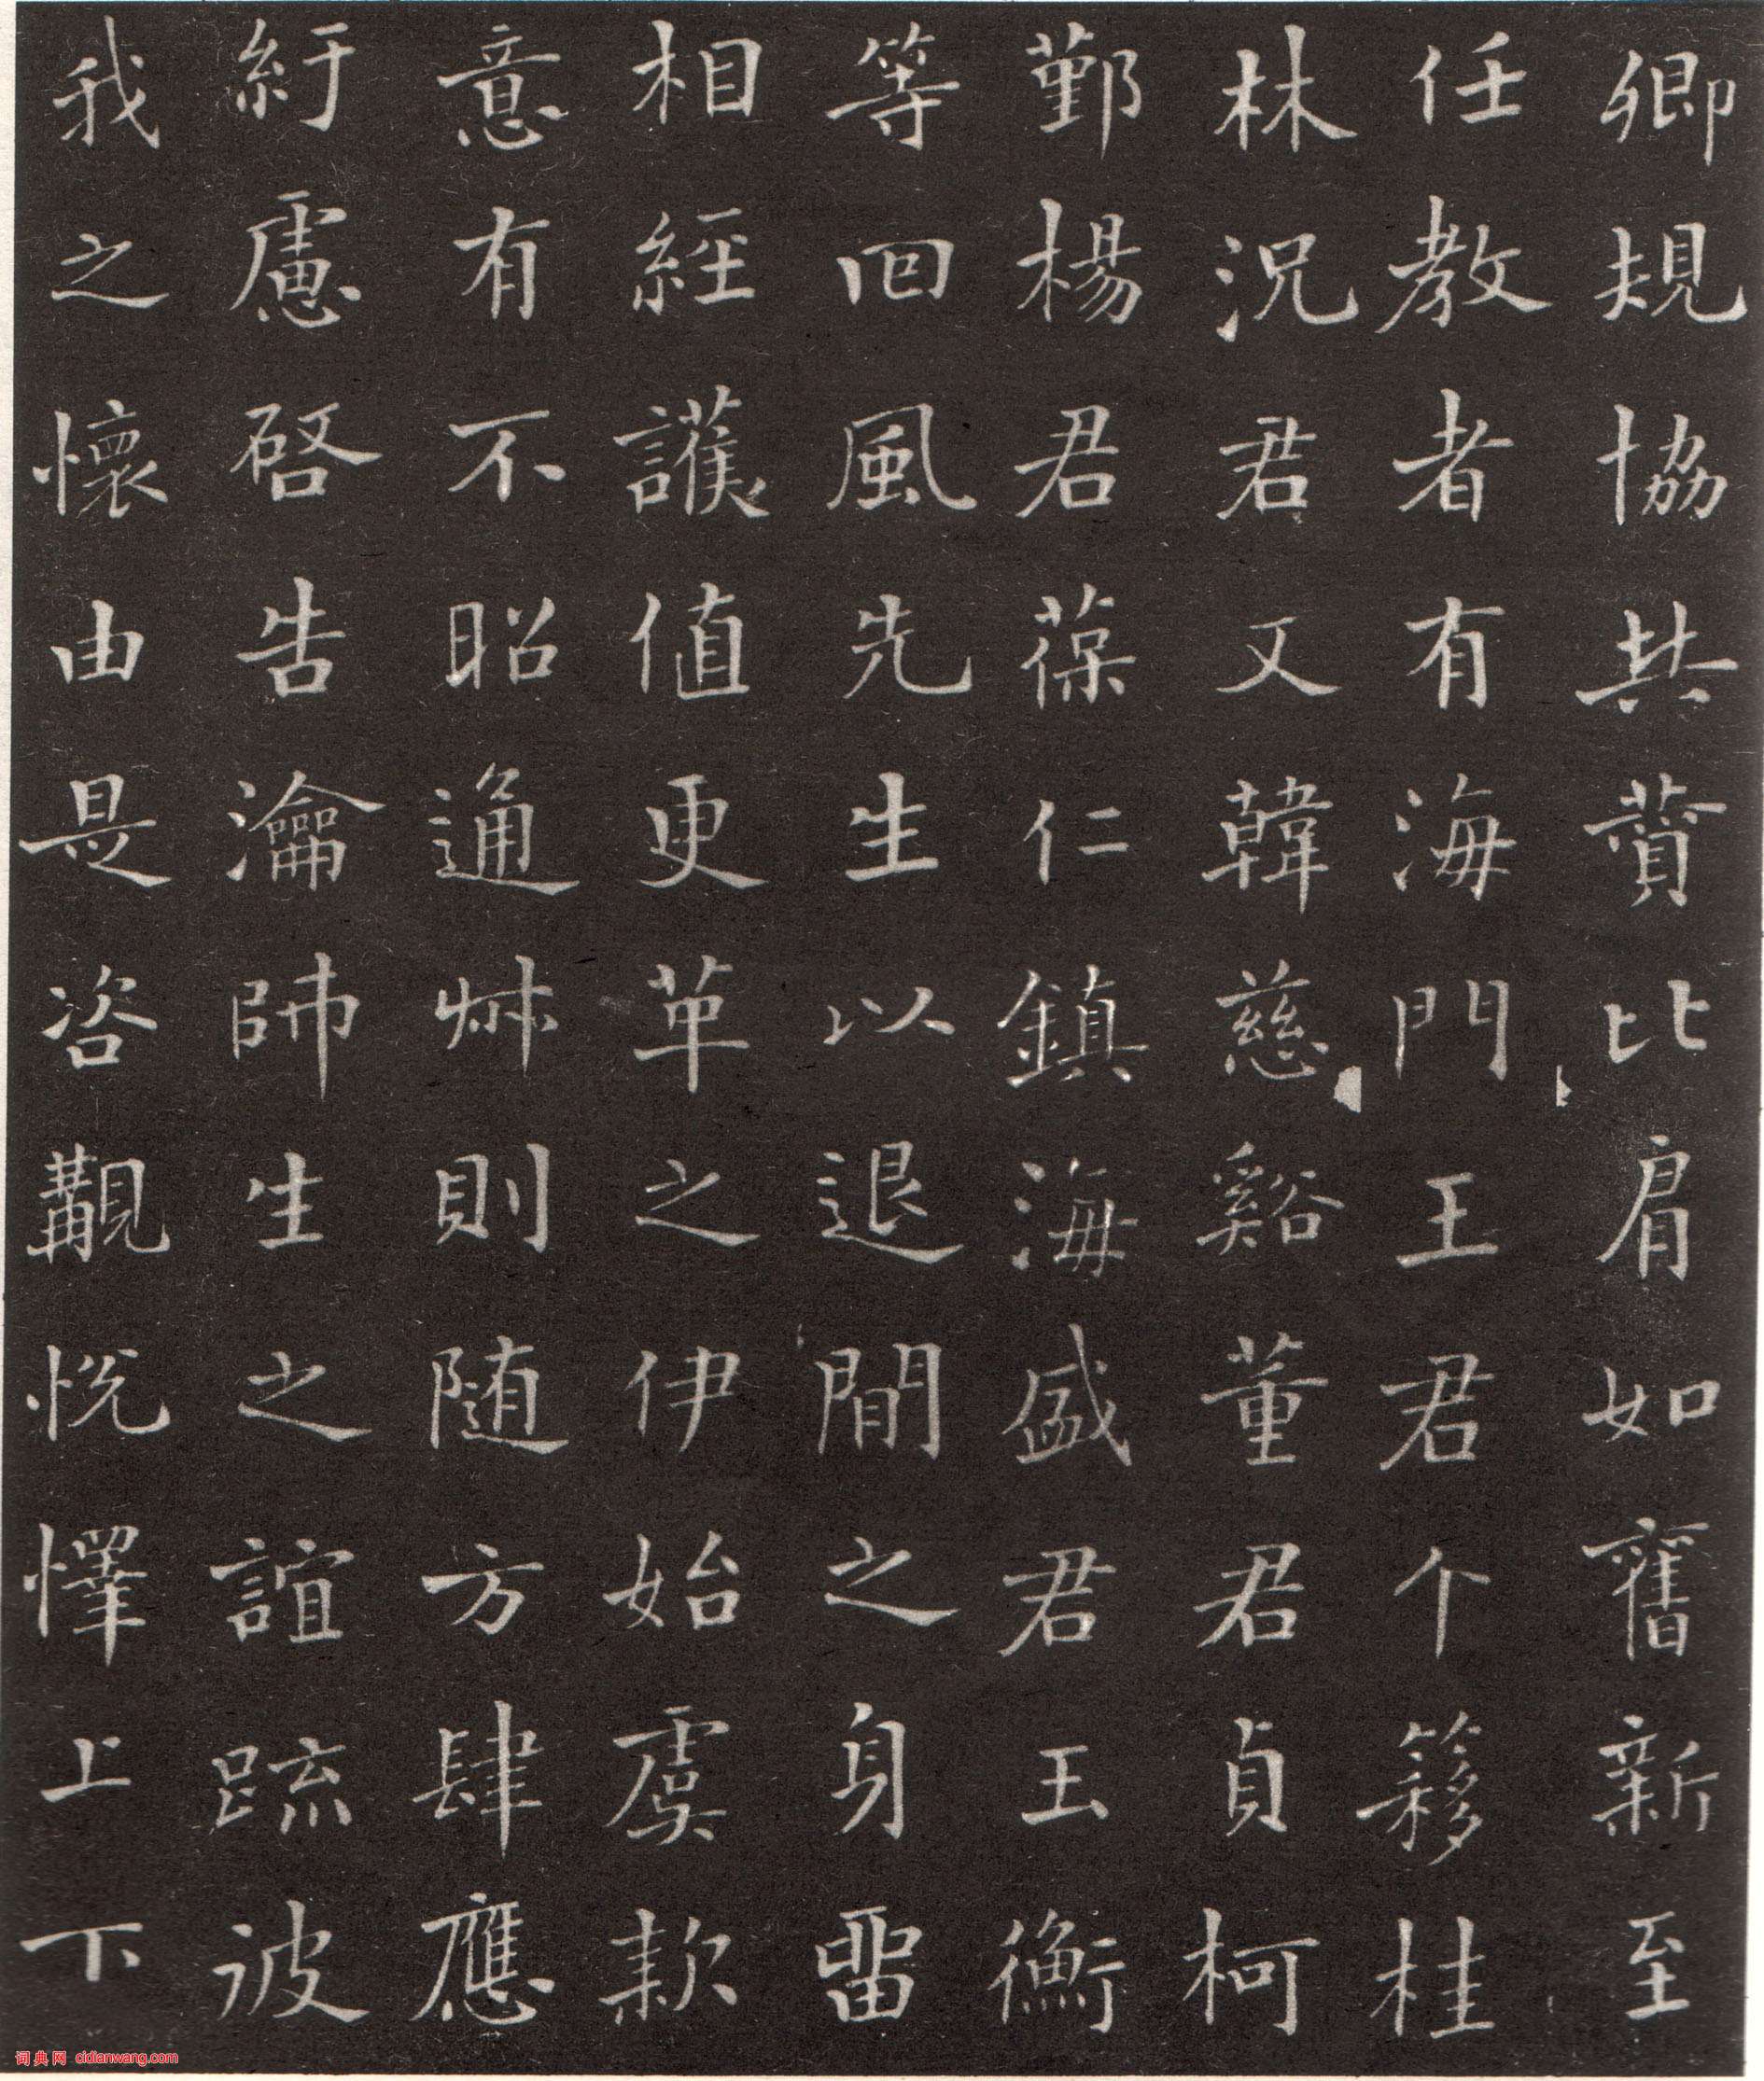 卿規協共贊比肩如舊新至
任教者有海門王君个簃桂
林況君又韓慈谿董君貞柯
鄞楊君葆仁鎮海盛君王衡
等回風先生以退閒之身留
相經護值更革之伊始虞款
意有不昭通艸則随方肆應
紆慮啓告瀹師生之誼疏波
我之懷由是咨覯悦懌上下
词典网 cidianwang.com